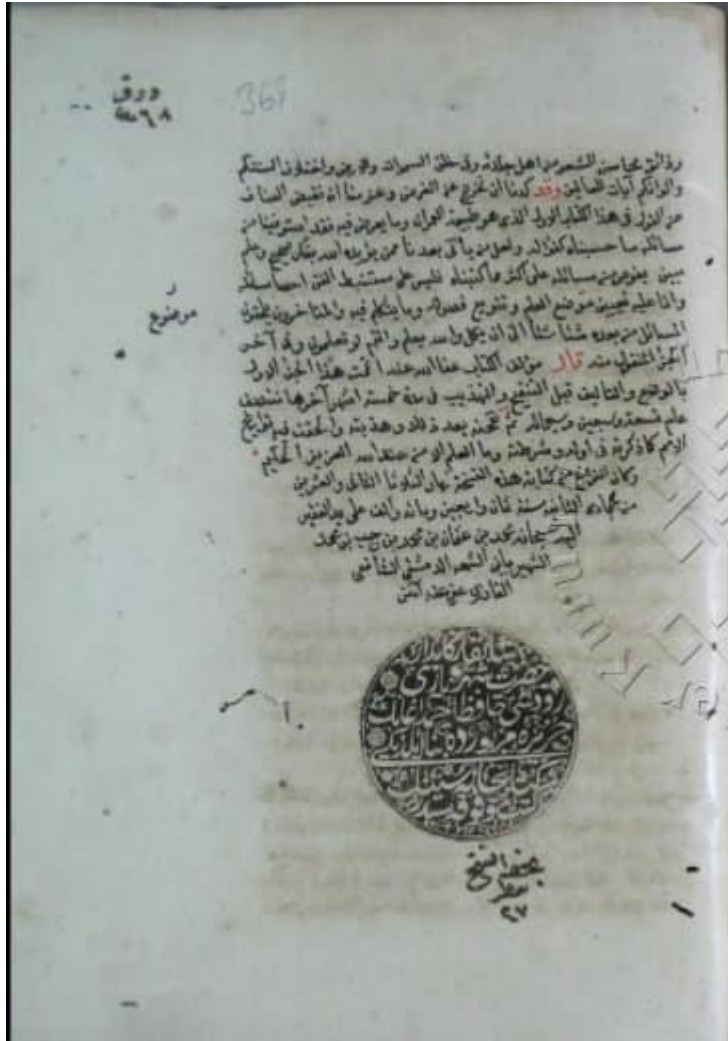 ورق
٣٦٨
369
وذائق محاسن الشعر من اهل جلدته وفي خلق السموات والارض واختلاف السنتكم
والوانكم آيات للعالمين وقد كدنا ان نخرج عن الغرض وعزمنا ان نقبض العنان
عن القول في هذا الكتاب الاول الذي هو طبيعة العمران وما يعرض فيه فقد استوفينا من
مسائله ما حسبناه كفاء له ولعل من يأتي بعدنا ممن يؤيده الله بفكر صحيح وعلم
مبين يغوص من مسائله على اكثر مما كتبناه فليس على مستنبط الفن احصاء مسائله
وانما عليه تعيين موضع العلم وتنويع فصوله وما يتكلم فيه والمتأخرون يلحقون
المسائل من بعده شيئا شيئا الى ان يكمل والله يعلم وانتم لا تعلمون وفي آخر
الجزء المنقول منه قال مؤلف الكتاب عفا الله عنه اتممت هذا الجزء الاول
بالوضع والتأليف قبل التنقيح والتهذيب في مدة خمسة اشهر آخرها منتصف
عام تسعة وسبعين وسبعمائة ثم نقحته بعد ذلك وهذبته والحقت فيه تواريخ
الامم كما ذكرته في اوله وشرطته وما العلم الا من عند الله العزيز الحكيم
وكان الفراغ من كتابة هذه النسخة نهار الثلاثا الثاني والعشرين
من جمادى الثانية سنة ثمان واربعين ومائة والف على يد الفقير
اليه سبحانه محمد بن عثمان بن محمد بن رجب بن محمد
الشهير بابن الشمعه الدمشقي الشافعي
القادري عفي عنه آمين
موضوع